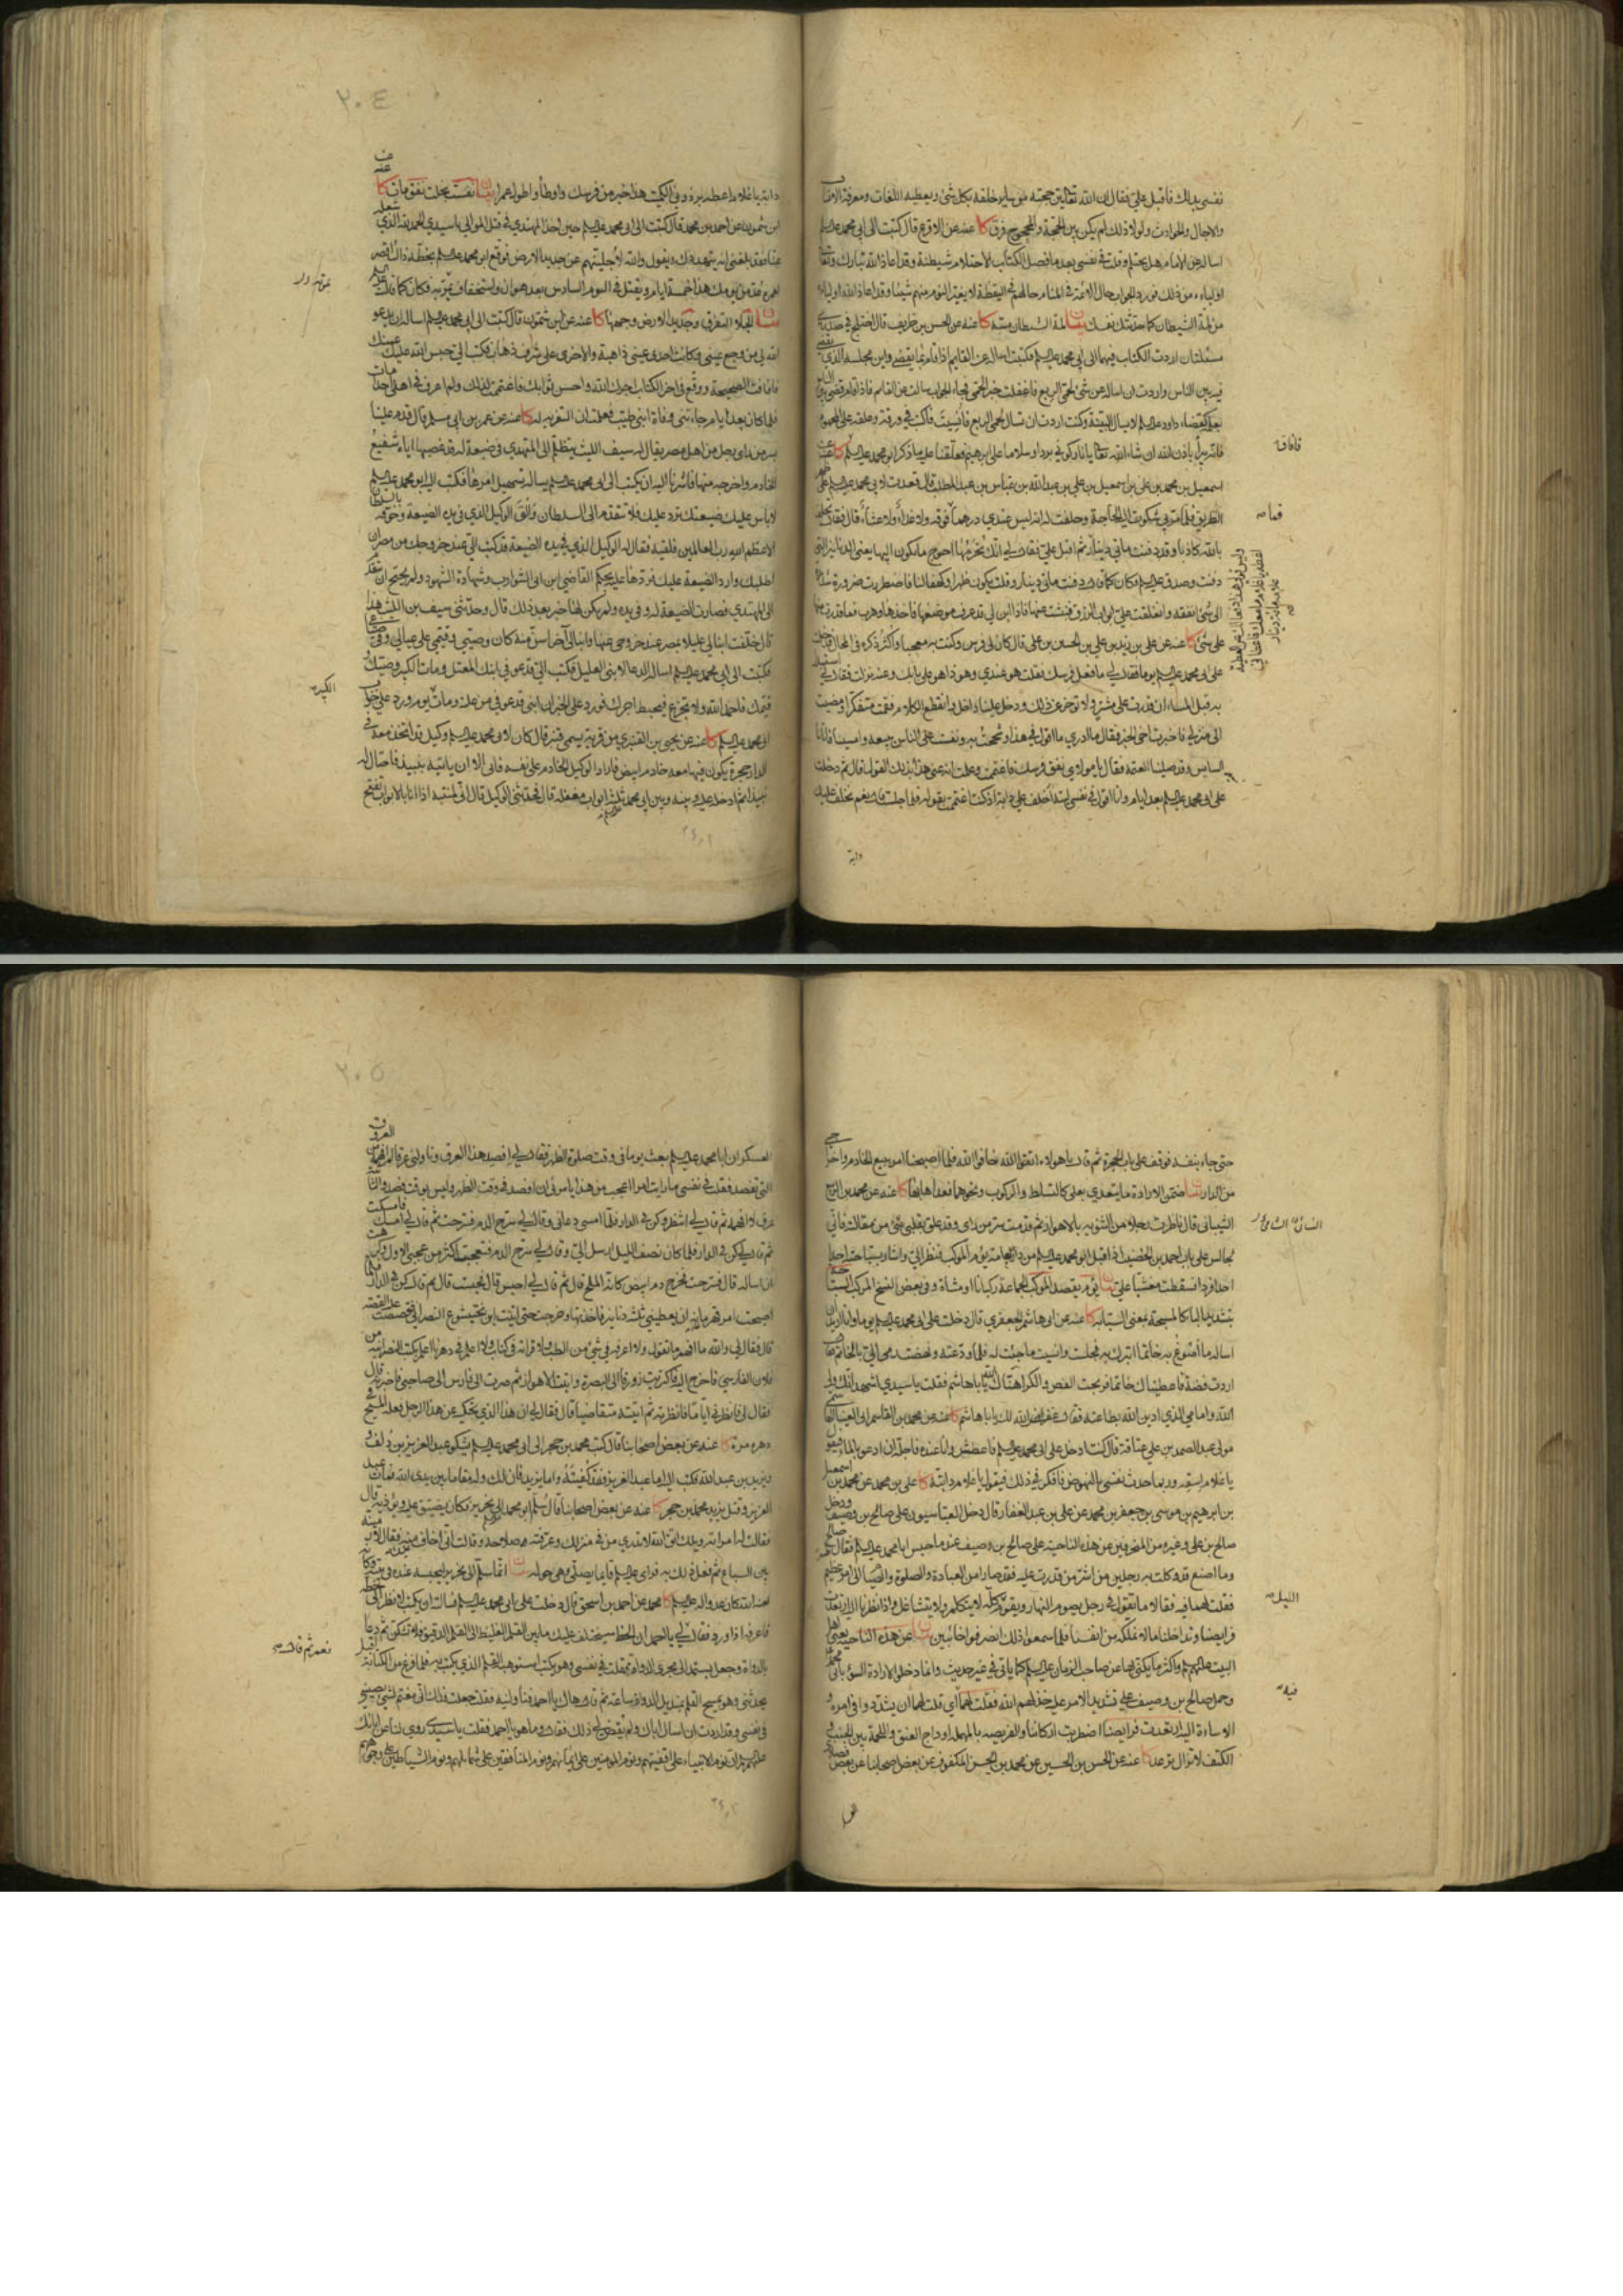 نفسي بذلك فاقبل علي فقال ان الله تعالى بين حجته من ساير خلقه بكل شئ ويعطيه اللغات ومعرفة الانساب
والاجال والحوادث ولولا ذلك لم يكن بين الحجة والمحجوج فرق كا عنه عن الاقرع قال كتبت الى ابي محمد
اساله عن الامام هل يحتلم وقلت في نفسي بعد ما فصل الكتاب الاحتلام شيطنة وقد اعاذ الله تبارك وتعالى
اولياءه من ذلك فورد الجواب حال الائمة في المنام حالهم في اليقظة لا يغير النوم منهم شيئا وقد اعاذ الله اولياءه
من لمة الشيطان كما حدثتك نفسك بيان لمة الشيطان مسه كا عنه عن الحسن بن ظريف قال اختلج في صدري
مسئلتان اردت الكتاب فيهما الى ابي محمد فكتبت اساله عن القايم اذا قام بما يقضي واين مجلسه الذي يقضي
فيه بين الناس واردت ان اساله عن شئ لحمى الربع فاغفلت خبر الحمى فجاء الجواب سالت عن القايم فاذا قام قضى بين الناس
بعلمه كقضاء داود لا يسال البينة وكنت اردت ان تسال لحمى الربع فانسيت فاكتب في ورقة وعلقه على المحموم
فانه يبرأ باذن الله ان شاء الله تعالى يا نار كوني بردا وسلاما على ابرهيم فعلقنا عليه ما ذكر ابو محمد
اسمعيل بن محمد بن علي بن اسمعيل بن علي بن عبد الله بن عباس بن عبد المطلب قال قعدت لابي محمد على
الطريق فلما مر بي شكوت اليه الحاجة وحلفت له انه ليس عندي درهما فوقه ولا غداء ولا عشاء قال فقال تحلف
بالله كاذبا وقد دفنت ماتي دينار ثم اقبل علي فقال لي انك تحرمها احوج ما تكون اليها يعني الدنانير التي
دفنت وصدق فكان كما قال دفنت ماتي دينار وقلت يكون ظهرا وكهفا لنا فاضطررت ضرورة شديدة
الى شئ انفقه وانغلقت علي ابواب الرزق فنبشت عنها فاذا ابن لي قد عرف موضعها فاخذها وهرب فما قدرت منها
على شئ كا عنه عن علي بن زيد بن علي بن الحسين بن علي قال كان لي فرس وكنت به معجبا واكثر ذكره في المحال فدخلت
على ابي محمد يوما فقال لي ما فعل فرسك فقلت هو عندي وهو ذا هو على بابك وعنه نزلت فقال لي استبدل
به قبل المساء ان قدرت على مشتر ولا تؤخر ذلك ودخل علينا داخل وانقطع الكلام فقمت متفكرا ومضيت
الى منزلي فاخبرت اخي الخبر فقال ما ادري ما اقول في هذا وشححت به ونفست على الناس ببيعه وامسينا فاتانا
السايس وقد صلينا العتمة فقال يا مولاي نفق فرسك فاغتممت وعلمت انه عنى هذا بذلك القول قال ثم دخلت
على ابي محمد بعد ايام وانا اقول في نفسي ليته اخلف علي دابة اذ كنت اغتممت بقوله فلما جلست قال نعم نخلف عليك
دابة
فافاقة
٢٠٤
دابة يا غلام اعطه برذوني الكميت هذا خير من فرسك واوطأ واطول عمرا بيان نفست بخلت نفق مات كا
ابن شمون عن احمد بن محمد قال كتبت الى ابي محمد حين اخذ المهتدي في قتل الموالي يا سيدي الحمد لله الذي شغله
عنا فقد بلغني انه يتهددك ويقول والله لاجلينهم عن جديد الارض فوقع ابو محمد بخطه ذاك اقصر
لعمره عد من يومك هذا خمسة ايام ويقتل في اليوم السادس بعد هوان واستخفاف يمر به فكان كما قال
بيان الجلاء التفرق وجديد الارض وجهها كا عنه عن ابن شمون قال كتبت الى ابي محمد اساله ان يدعو
الله لي من وجع عيني وكانت احدى عيني ذاهبة والاخرى على شرف ذهاب فكتب الي حبس الله عليك عينك
فافاقت الصحيحة ووقع في اخر الكتاب اجرك الله واحسن ثوابك فاغتممت لذلك ولم اعرف في اهلي احدا مات
فلما كان بعد ايام جاءتني وفاة ابني طيب فعلمت ان التعزية له كا عنه عن عمر بن ابي مسلم قال قدم علينا
بسر من راى رجل من اهل مصر يقال له سيف بن الليث يتظلم الى المهتدي في ضيعة له قد غصبها اياه شفيع
الخادم واخرجه منها فاشرنا اليه ان يكتب الى ابي محمد يساله تسهيل امرها فكتب اليه ابو محمد
لا باس عليك ضيعتك ترد عليك فلا تتقدم الى السلطان والق الوكيل الذي في يده الضيعة وخوفه بالسلطان
الاعظم الله رب العالمين فلقيه فقال له الوكيل الذي في يده الضيعة قد كتب الي عند خروجك من مصر ان
اطلبك وارد الضيعة عليك فردها عليه بحكم القاضي ابن ابي الشوارب وشهادة الشهود ولم يحتج ان يتقدم
الى المهتدي فصارت الضيعة له وفي يده ولم يكن لها خبر بعد ذلك قال وحدثني سيف بن الليث هذا
قال خلفت ابنا لي عليلا بمصر عند خروجي عنها وابنا لي اخر اسن منه كان وصيي وقيمي على عيالي وفي ضياعي
فكتبت الى ابي محمد اساله الدعاء لابني العليل فكتب الي قد عوفي ابنك المعتل ومات الكبير وصيك و
قيمك فاحمد الله ولا تجزع فيحبط اجرك فورد علي الخبر ان ابني قد عوفي من علته ومات الكبير يوم ورد علي جواب
ابي محمد كا عنه عن يحيى بن القنبري من قرية يسمى قنبر قال كان لابي محمد وكيل قد اتخذ معه في
الدار حجرة يكون فيها معه خادم ابيض فاراد الوكيل الخادم على نفسه فابى الا ان ياتيه بنبيذ فاحتال له
نبيذا ثم ادخله عليه وبينه وبين ابي محمد ثلثة ابواب مغلقة قال فحدثني الوكيل قال اني لمنتبه اذا انا بالابواب تفتح
الكبير
حتى جاء بنفسه فوقف على باب الحجرة ثم قال يا هؤلاء اتقوا الله خافوا الله فلما اصبحنا امر ببيع الخادم واخراجي
من الدار بيان ضمن الارادة ما يتعدى بعلى كالتسلط والركوب ونحوهما فعداها بها كا عنه عن محمد بن الربيع
الشيباني قال ناظرت رجلا من الثنوية بالاهواز ثم قدمت سر من راى وقد علق بقلبي شئ من مقالته فاني
لجالس على باب احمد بن الخضيب اذ اقبل ابو محمد من دار العامة يوم الموكب فنظر الي واشار بسباحته احد
احد فرد فسقطت مغشيا علي بيان يوم يقصد الموكب الجماعة ركبانا او مشاة وفي بعض النسخ
بتشديد الباء كالمسبحة بمعنى السبابة كا عنه عن ابي هاشم الجعفري قال دخلت على ابي محمد يوما وانا اريد ان
اساله ما اصوغ به خاتما اتبرك به فجلست وانسيت ما جئت له فلما ودعته ونهضت رمى الي بالخاتم فقال
اردت فضة فاعطيناك خاتما فربحت الفص والكرا هنأك الله يا با هاشم فقلت يا سيدي اشهد انك ولي
الله وامامي الذي ادين الله بطاعته فقال غفر الله لك يا با هاشم كا عنه عن محمد بن القاسم ابي العيناء الهاشمي
مولى عبد الصمد بن علي عتاقة قال كنت ادخل على ابي محمد فاعطش وانا عنده فاجله ان ادعو بالماء فيقول
يا غلام اسقه وربما حدثت نفسي بالنهوض فافكر في ذلك فيقول يا غلام دابته كا علي بن محمد عن محمد بن اسمعيل
بن ابرهيم بن موسى بن جعفر بن محمد عن علي بن عبد الغفار قال دخل العباسيون على صالح بن وصيف ودخل
صالح بن علي وغيره من المنحرفين عن هذه الناحية على صالح بن وصيف عندما حبس ابا محمد فقال لهم صالح
وما اصنع قد وكلت به رجلين من اشر من قدرت عليه فقد صارا من العبادة والصلوة والصيام الى امر عظيم
فقلت لهما فيه فقالا ما تقول في رجل يصوم النهار ويقوم الليل كله لا يتكلم ولا يتشاغل واذا نظرنا اليه ارتعدت
فرايصنا وتداخلنا ما لا نملكه من انفسنا فلما سمعوا ذلك انصرفوا خائبين بيان عن هذه الناحية يعني اهل
البيت عليهم وأكثر ما يكنى بها عن صاحب الزمان كما ياتي في غير حديث وانما دخلوا لارادة السوء بابي محمد
وحمل صالح بن وصيف على تشديد الامر عليه خذلهم الله فقلت لهما اي قلت لهما ان يشددا في امره و
الاساءة اليه ارتعدت فرايصنا اضطربت اركاننا والفريصة بالمهملة اوداج العنق واللحمة بين الجنب و
الكتف لا تزال ترعد كا عنه عن الحسن بن الحسين عن محمد بن الحسن المكفوف عن بعض اصحابنا عن بعض فصادي
الليل
فيه
٢٠٥
العسكر ان ابا محمد بعث يوما في وقت صلوة الظهر فقال لي افصد هذا العرق وناولني عرقا لم افهمه من العروق
التي تفصد فقلت في نفسي ما رايت امرا اعجب من هذا يامرني ان افصد في وقت الظهر وليس بوقت فصد والثانية
عرق لا افهمه ثم قال لي انتظر وكن في الدار فلما امسى دعاني وقال لي سرح الدم فسرحت ثم قال لي امسك فامسكت
ثم قال لي كن في الدار فلما كان نصف الليل ارسل الي وقال لي سرح الدم فتعجبت اكثر من عجبي الاول وكرهت
ان اساله قال فسرحت فخرج دم ابيض كانه الملح قال ثم قال لي احبس قال فحبست قال ثم قال كن في الدار فلما
اصبحت امر قهرمانه ان يعطيني ثلثة دنانير فاخذتها وخرجت حتى اتيت ابن بختيشوع النصراني فقصصت عليه القصة
قال فقال لي والله ما افهم ما تقول ولا اعرفه في شئ من الطب ولا قرأته في كتاب ولا اعلم في دهرنا اعلم بكتب النصرانية من
فلان الفارسي فاخرج اليه فاكتريت زورقا الى البصرة واتيت الاهواز ثم صرت الى فارس الى صاحبي فاخبرته قال
فقال لي انظرني اياما فانظرته ثم اتيته متقاضيا قال فقال لي ان هذا الذي تحكيه عن هذا الرجل فعله المسيح في
دهره مرة كا عنه عن بعض اصحابنا قال كتب محمد بن حجر الى ابي محمد يشكو عبد العزيز بن دلف و
يزيد بن عبد الله فكتب اليه اما عبد العزيز فقد كفيته واما يزيد فان لك وله مقاما بين يدي الله فمات عبد
العزيز وقتل يزيد محمد بن حجر كا عنه عن بعض اصحابنا قال سلم ابو محمد الى نحرير فكان يضيق عليه ويؤذيه قال
فقالت له امراته ويلك اتق الله لا تدري من في منزلك وعرفته صلاحه وقالت اني اخاف عليك منه فقال لارمينه
بين السباع ثم فعل ذلك به فراى قايما يصلي وهي حوله بيان انما سلم الى نحرير ليحبسه عنده في بيته وكان
لعنه الله كان عدوا له كا محمد عن احمد بن اسحق قال دخلت على ابي محمد فسالت ان يكتب لانظر الى خطه
فاعرفه اذا ورد فقال لي يا احمد ان الخط سيختلف عليك ما بين القلم الغليظ الى القلم الدقيق فلا تشكن ثم دعا
بالدواة وجعل يستمد الى مجرى الدواة فقلت في نفسي وهو يكتب استوهبه القلم الذي يكتب به فلما فرغ من الكتابة اقبل
يحدثني وهو يمسح القلم بمنديل الدواة ساعة ثم قال هاك يا احمد فناولنيه فقلت جعلت فداك اني مغتم لشئ يصيبني
في نفسي وقد اردت ان اسال اباك ولم يقض لي ذلك فقال وما هو يا احمد فقلت يا سيدي روي لنا عن ابائك
ان نوم الانبياء على اقفيتهم ونوم المؤمنين على ايمانهم ونوم المنافقين على شمائلهم ونوم الشياطين على وجوههم
نعم ثم قال